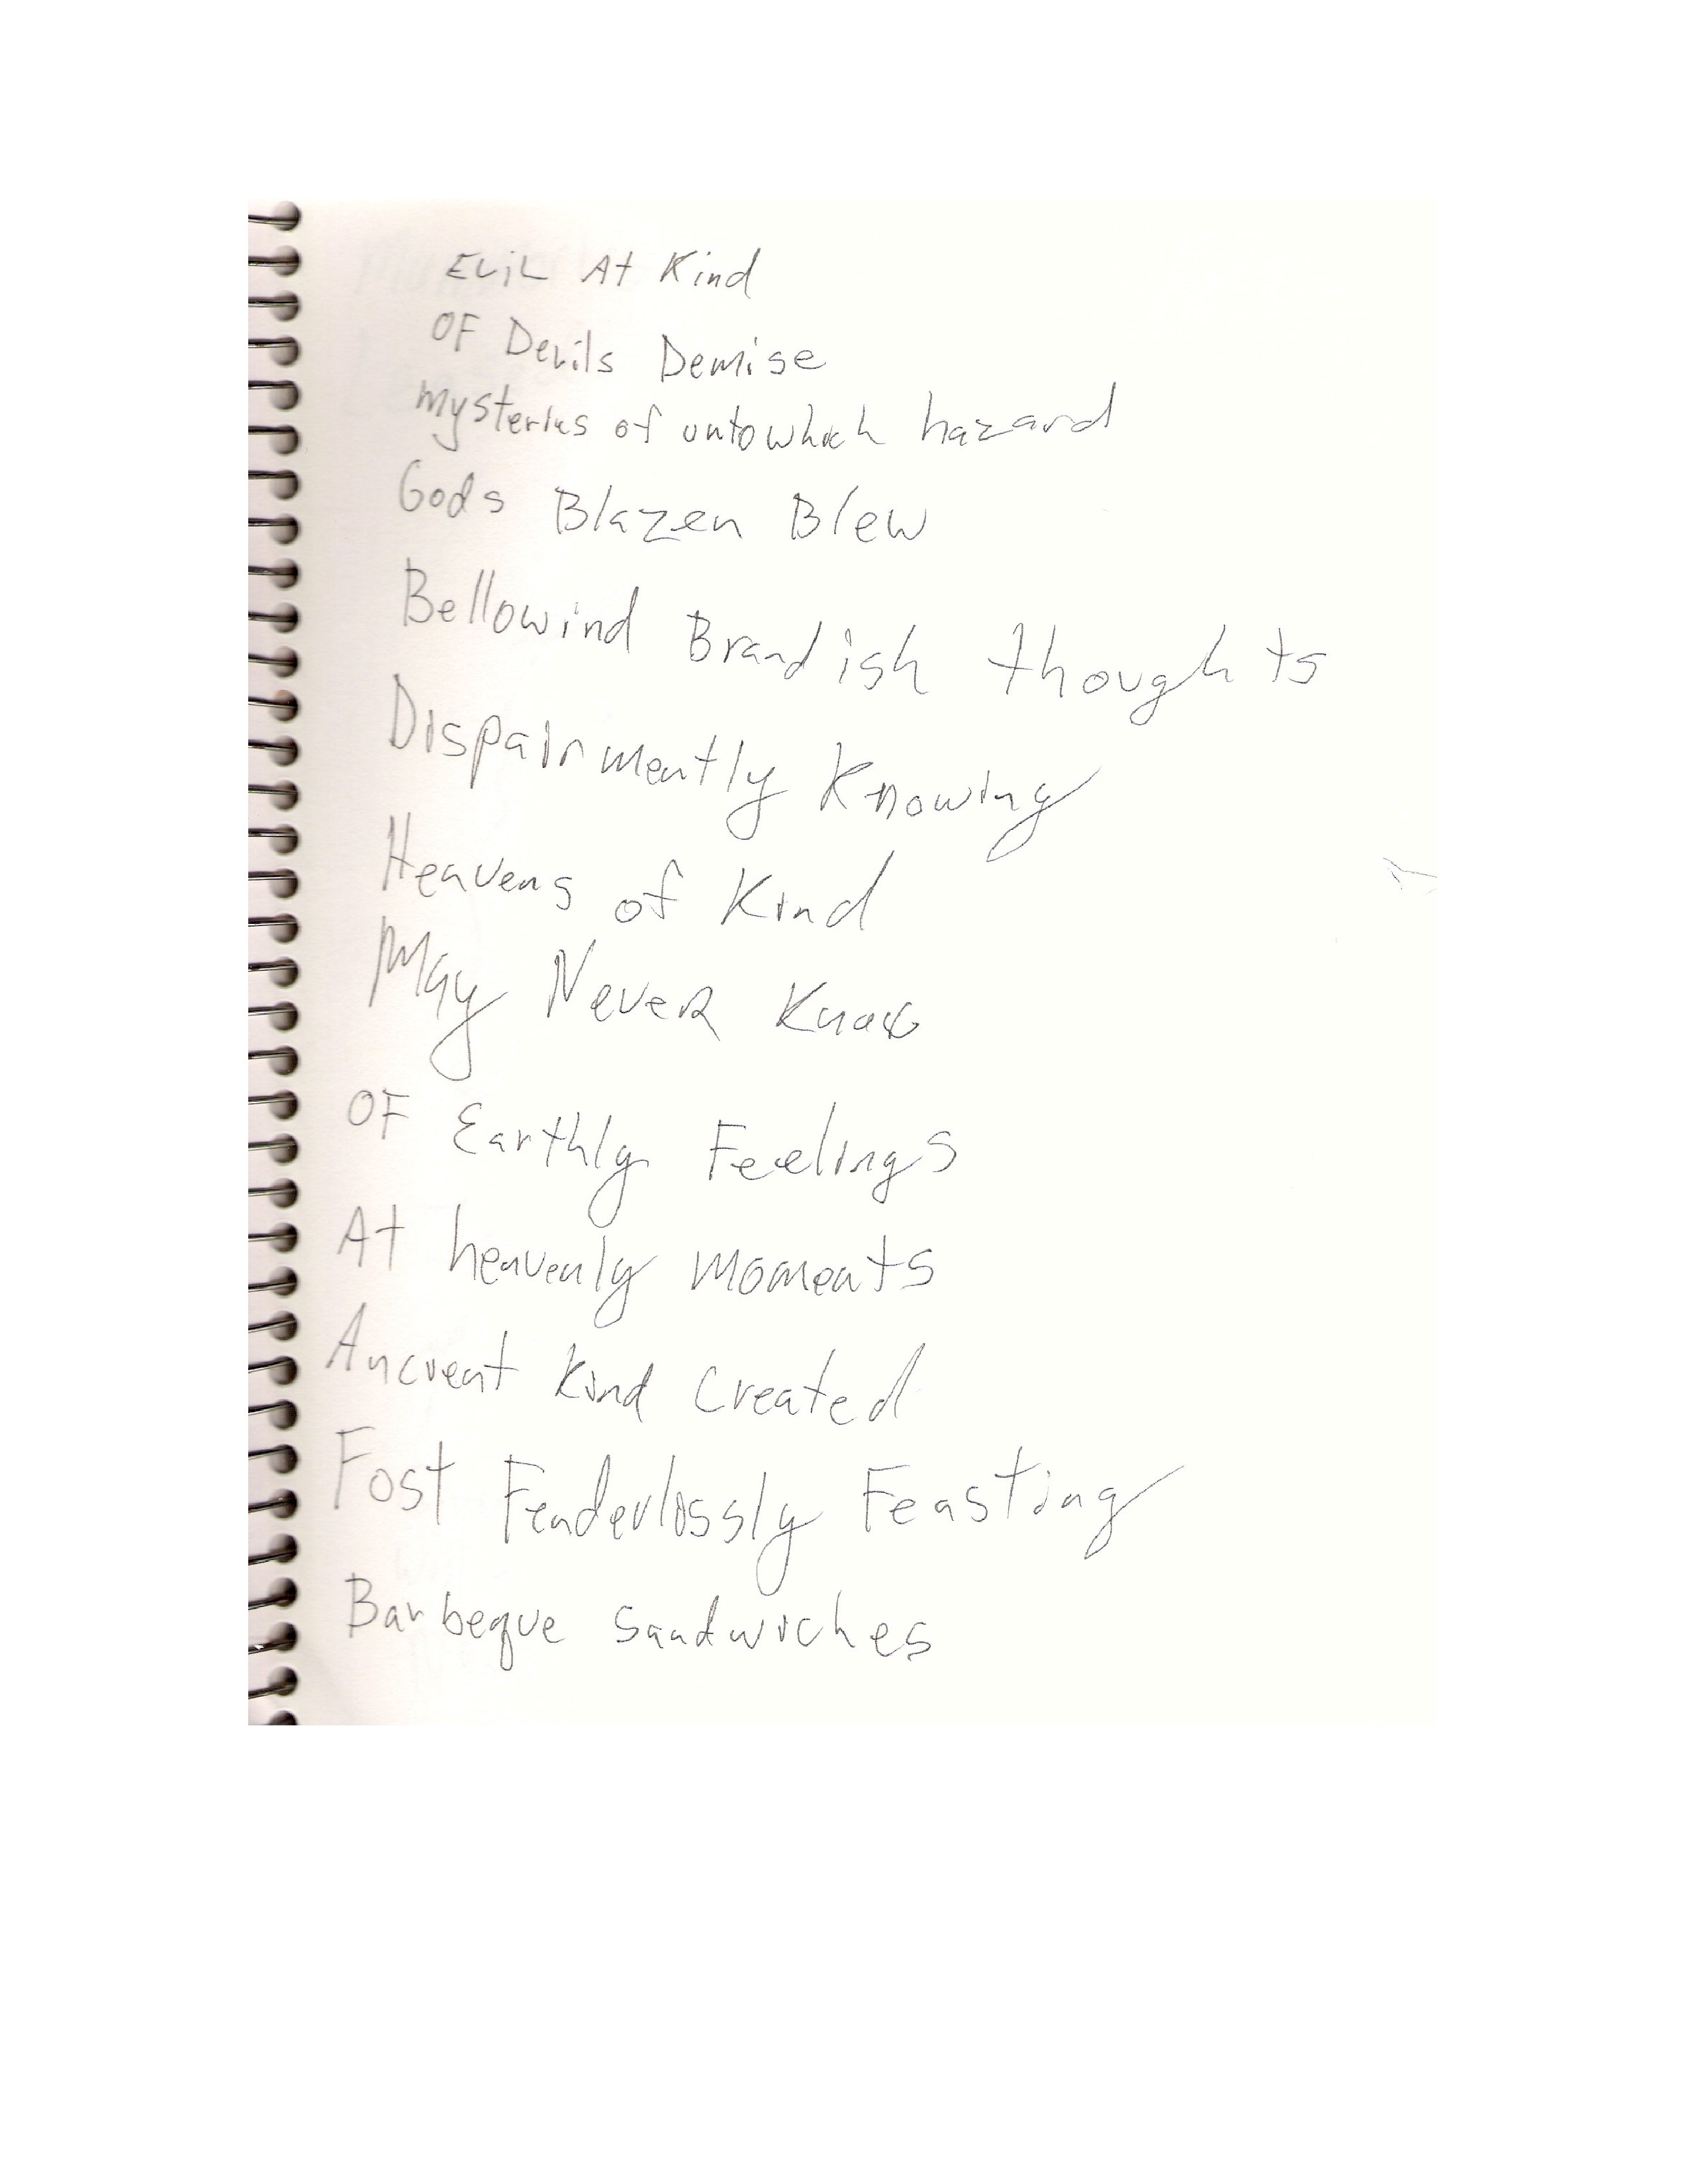 Evil At Kind
OF Devils Demise
Mysteries of untowhich hazard
Gods Blazen Blew
Bellowind Brandish thoughts
Dispairmently Knowing
Heavens of Kind
May Never Know
OF Earthly Feelings
At heavenly moments
Ancient Kind Created
Fost Fenderlossly Feasting
Barbeque Sandwiches